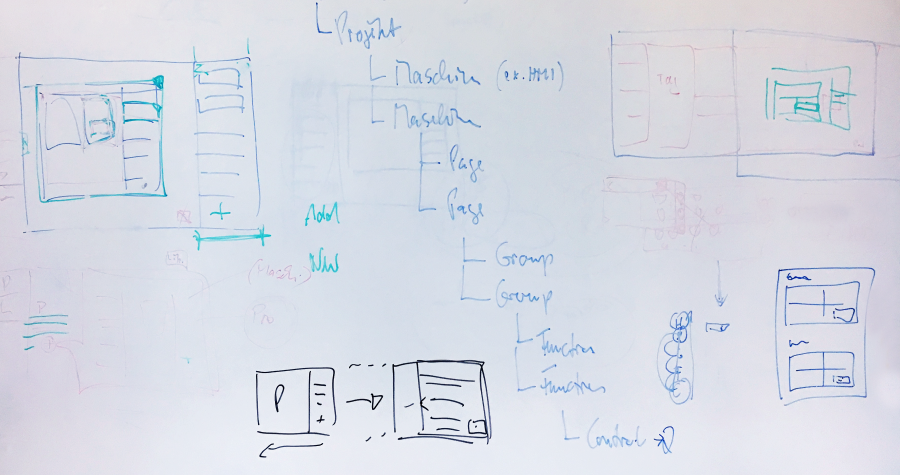 Projekt
Maschine (ex. HMI)
Maschine
Page
Page
Add
New
Group
Group
Function
Function
P
+
Control